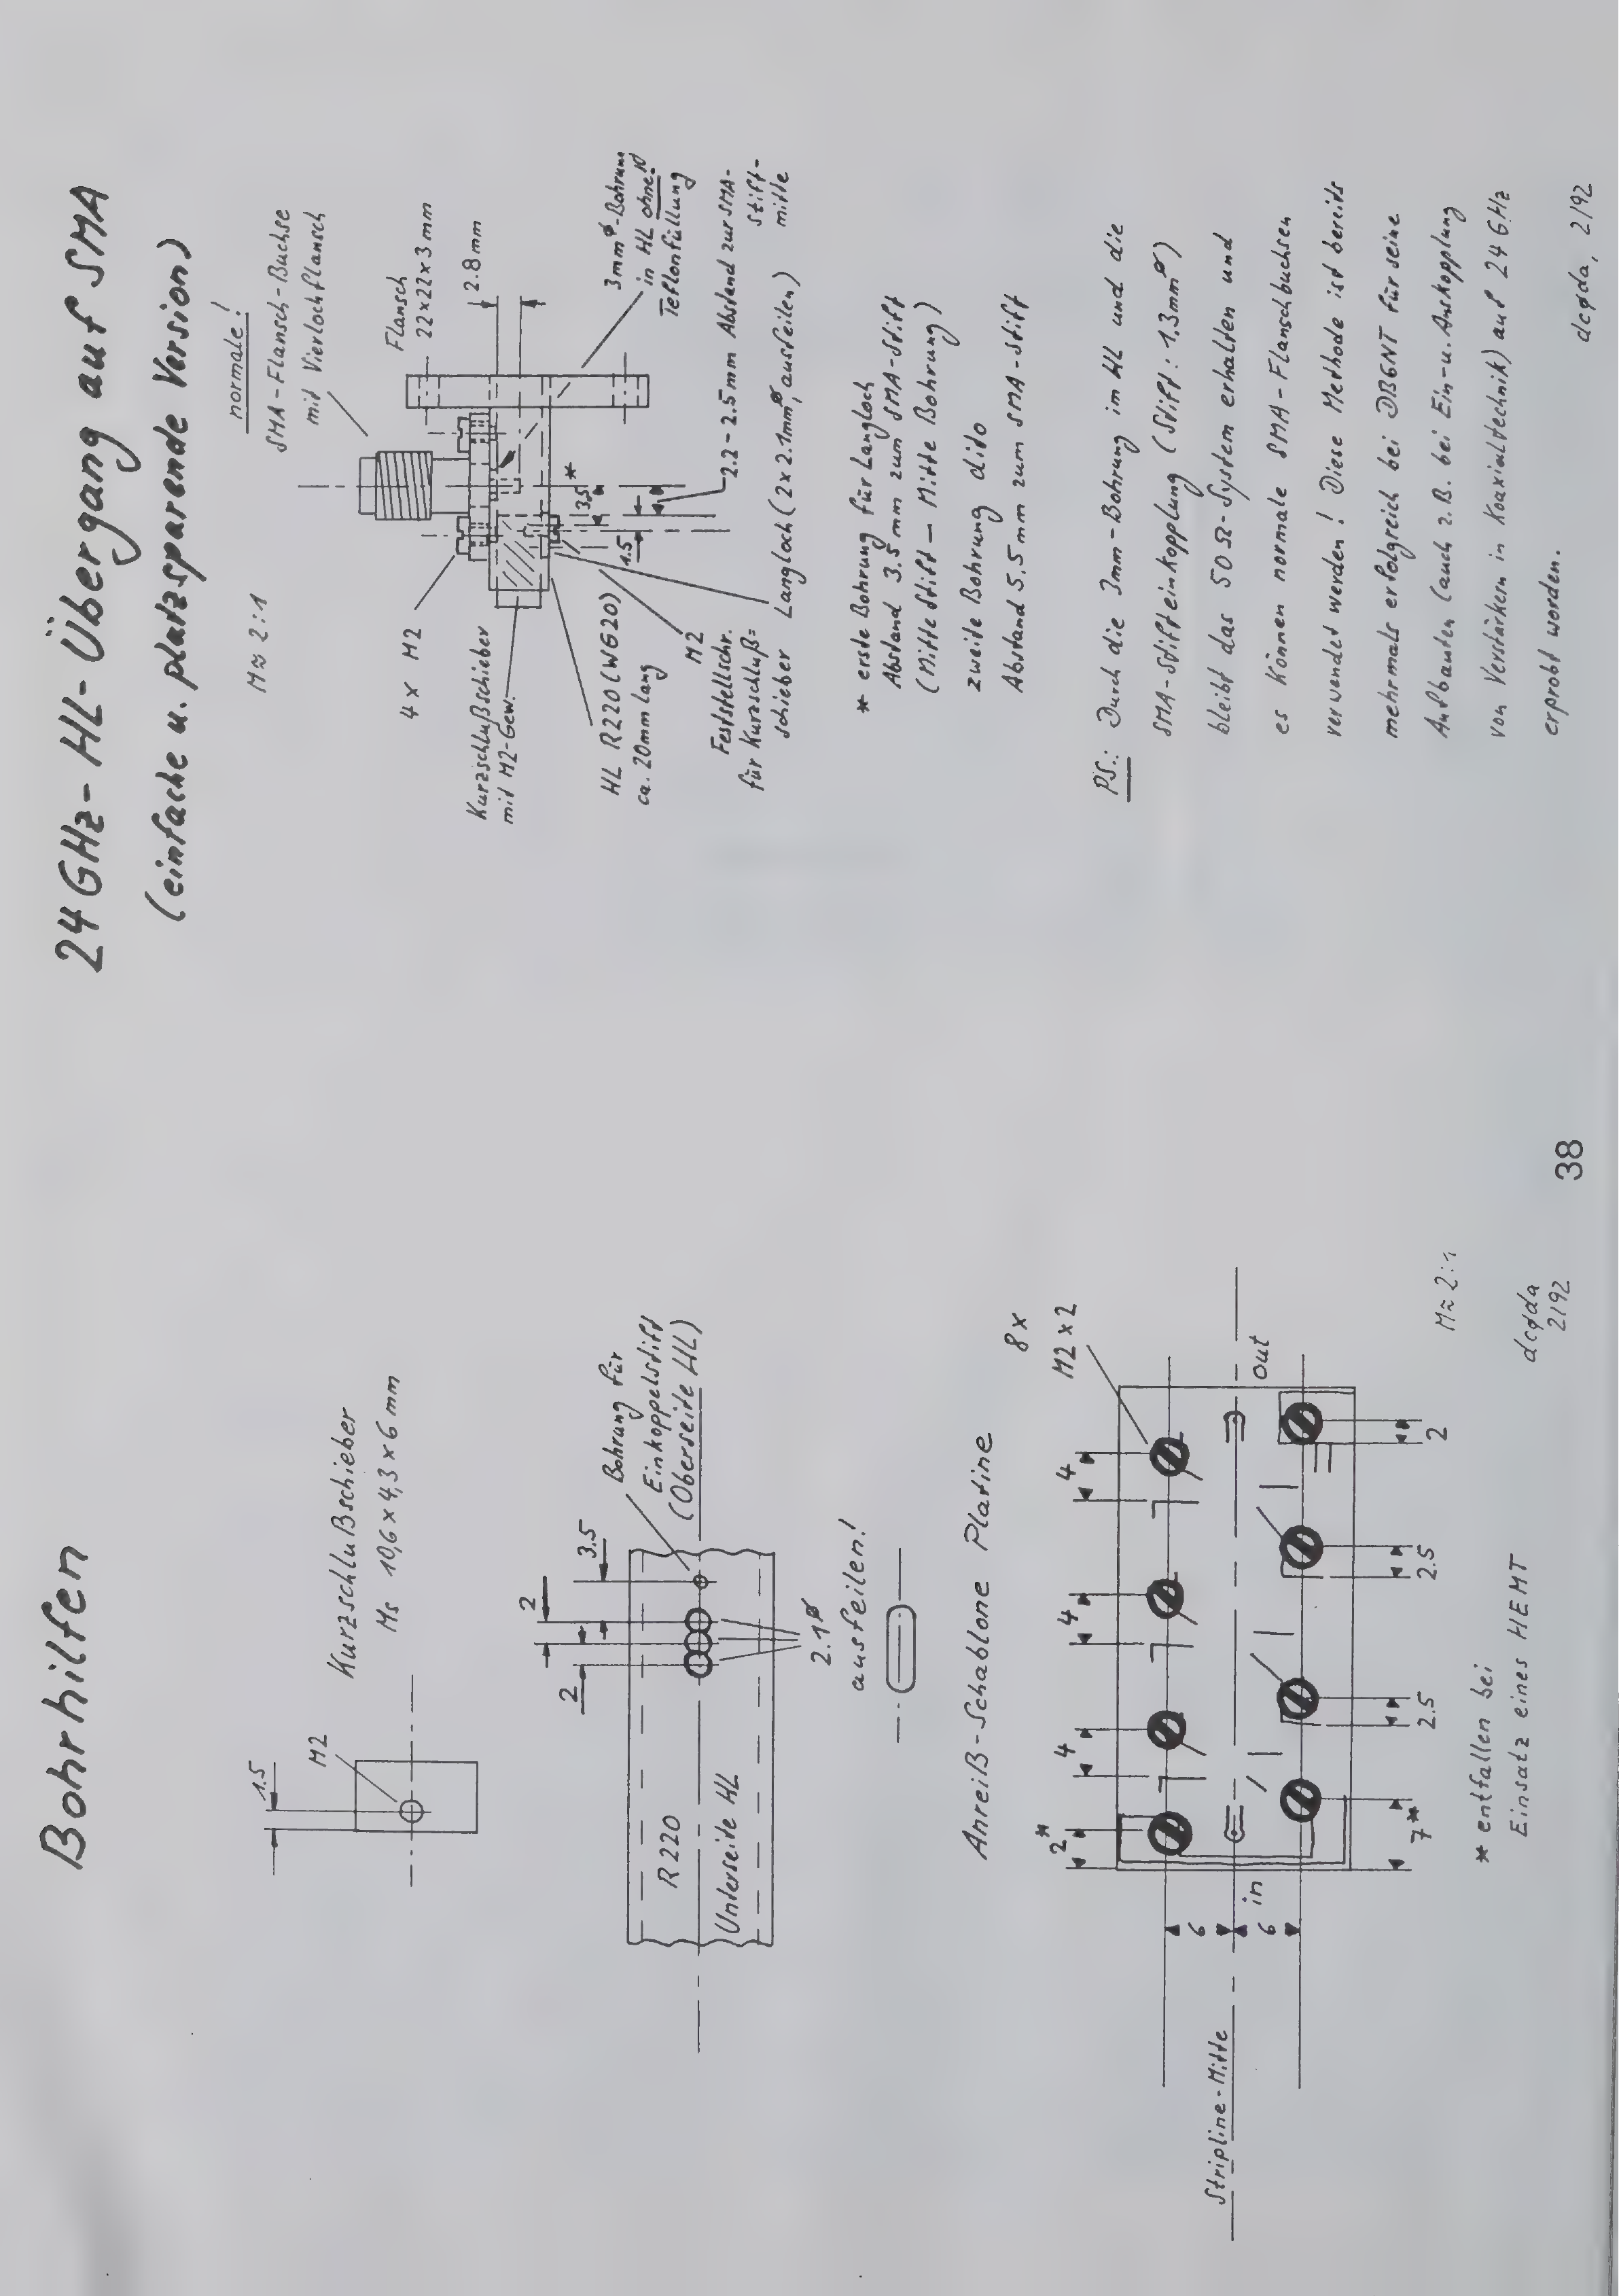 Bohrhilfen
1.5
M2
Kurzschlußschieber
Ms 10,6 x 4,3 x 6 mm
2
2
3.5
Bohrung für
Einkoppelstift
(Oberseite HL)
R 220
Unterseite HL
2.1ø
ausfeilen!
Anreiß-Schablone Platine
8 x
M2 x 2
2*
4
4
4
in
out
6
6
Stripline-Mitte
7*
2.5
2.5
2
M ≈ 2:1
* entfallen bei
Einsatz eines HEMT
dcøda
2/92
38
24 GHz-HL-Übergang auf SMA
(einfache u. platzsparende Version)
M ≈ 2:1
normale!
SMA-Flansch-Buchse
mit Vierlochflansch
4 x M2
Flansch
22 x 22 x 3 mm
2.8 mm
Kurzschlußschieber
mit M2-Gew.
3mmø-Bohrung
in HL ohne!!
Teflonfüllung
3.5 *
1.5
HL R220 (WG20)
ca. 20mm lang
2.2 - 2.5 mm Abstand zur SMA-
Stift-
mitte
M2
Feststellschr.
für Kurzschluß=
schieber
Langloch (2x 2.1mmø, ausfeilen)
* erste Bohrung für Langloch
Abstand 3.5 mm zum SMA-Stift
(Mitte Stift - Mitte Bohrung)
zweite Bohrung dito
Abstand 5,5 mm zum SMA-Stift
PS.: Durch die 3mm-Bohrung im HL und die
SMA-Stifteinkopplung (Stift: 1.3mmø)
bleibt das 50Ω-System erhalten und
es können normale SMA-Flanschbuchsen
verwendet werden! Diese Methode ist bereits
mehrmals erfolgreich bei DB6NT für seine
Aufbauten (auch z.B. bei Ein-u. Auskopplung
von Verstärkern in Koaxialtechnik) auf 24 GHz
erprobt worden.
dcøda, 2/92